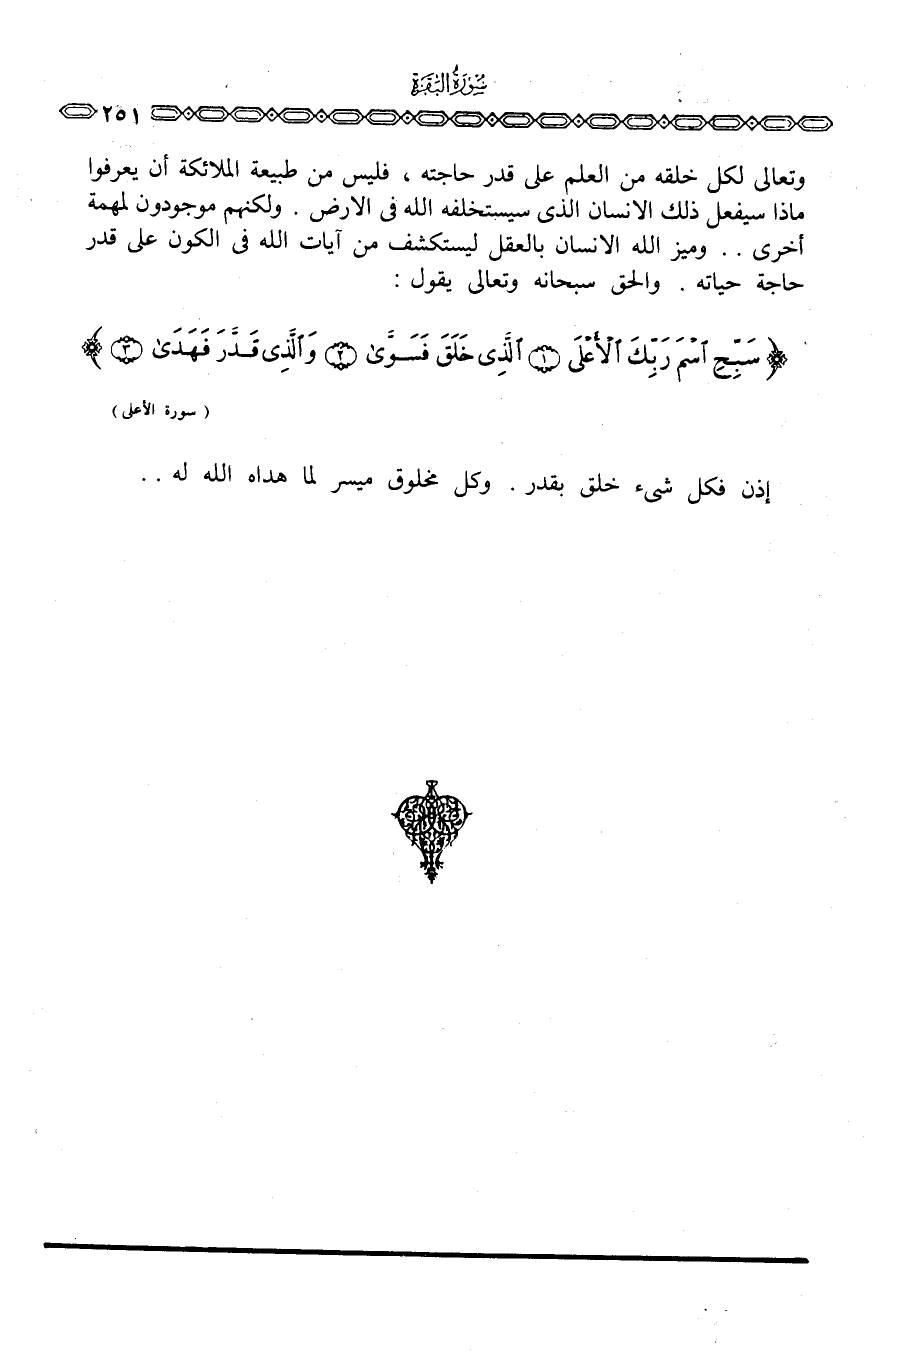 سورة البقرة
٢٥١
وتعالى لكل خلقه من العلم على قدر حاجته ، فليس من طبيعة الملائكة أن يعرفوا
ماذا سيفعل ذلك الانسان الذى سيستخلفه الله فى الارض . ولكنهم موجودون لمهمة
أخرى . . وميز الله الانسان بالعقل ليستكشف من آيات الله فى الكون على قدر
حاجة حياته . والحق سبحانه وتعالى يقول :
﴿ سَبِّحِ ٱسْمَ رَبِّكَ ٱلْأَعْلَى ١ ٱلَّذِى خَلَقَ فَسَوَّىٰ ٢ وَٱلَّذِى قَدَّرَ فَهَدَىٰ ٣ ﴾
( سورة الأعلى )
إذن فكل شىء خلق بقدر . وكل مخلوق ميسر لما هداه الله له . .